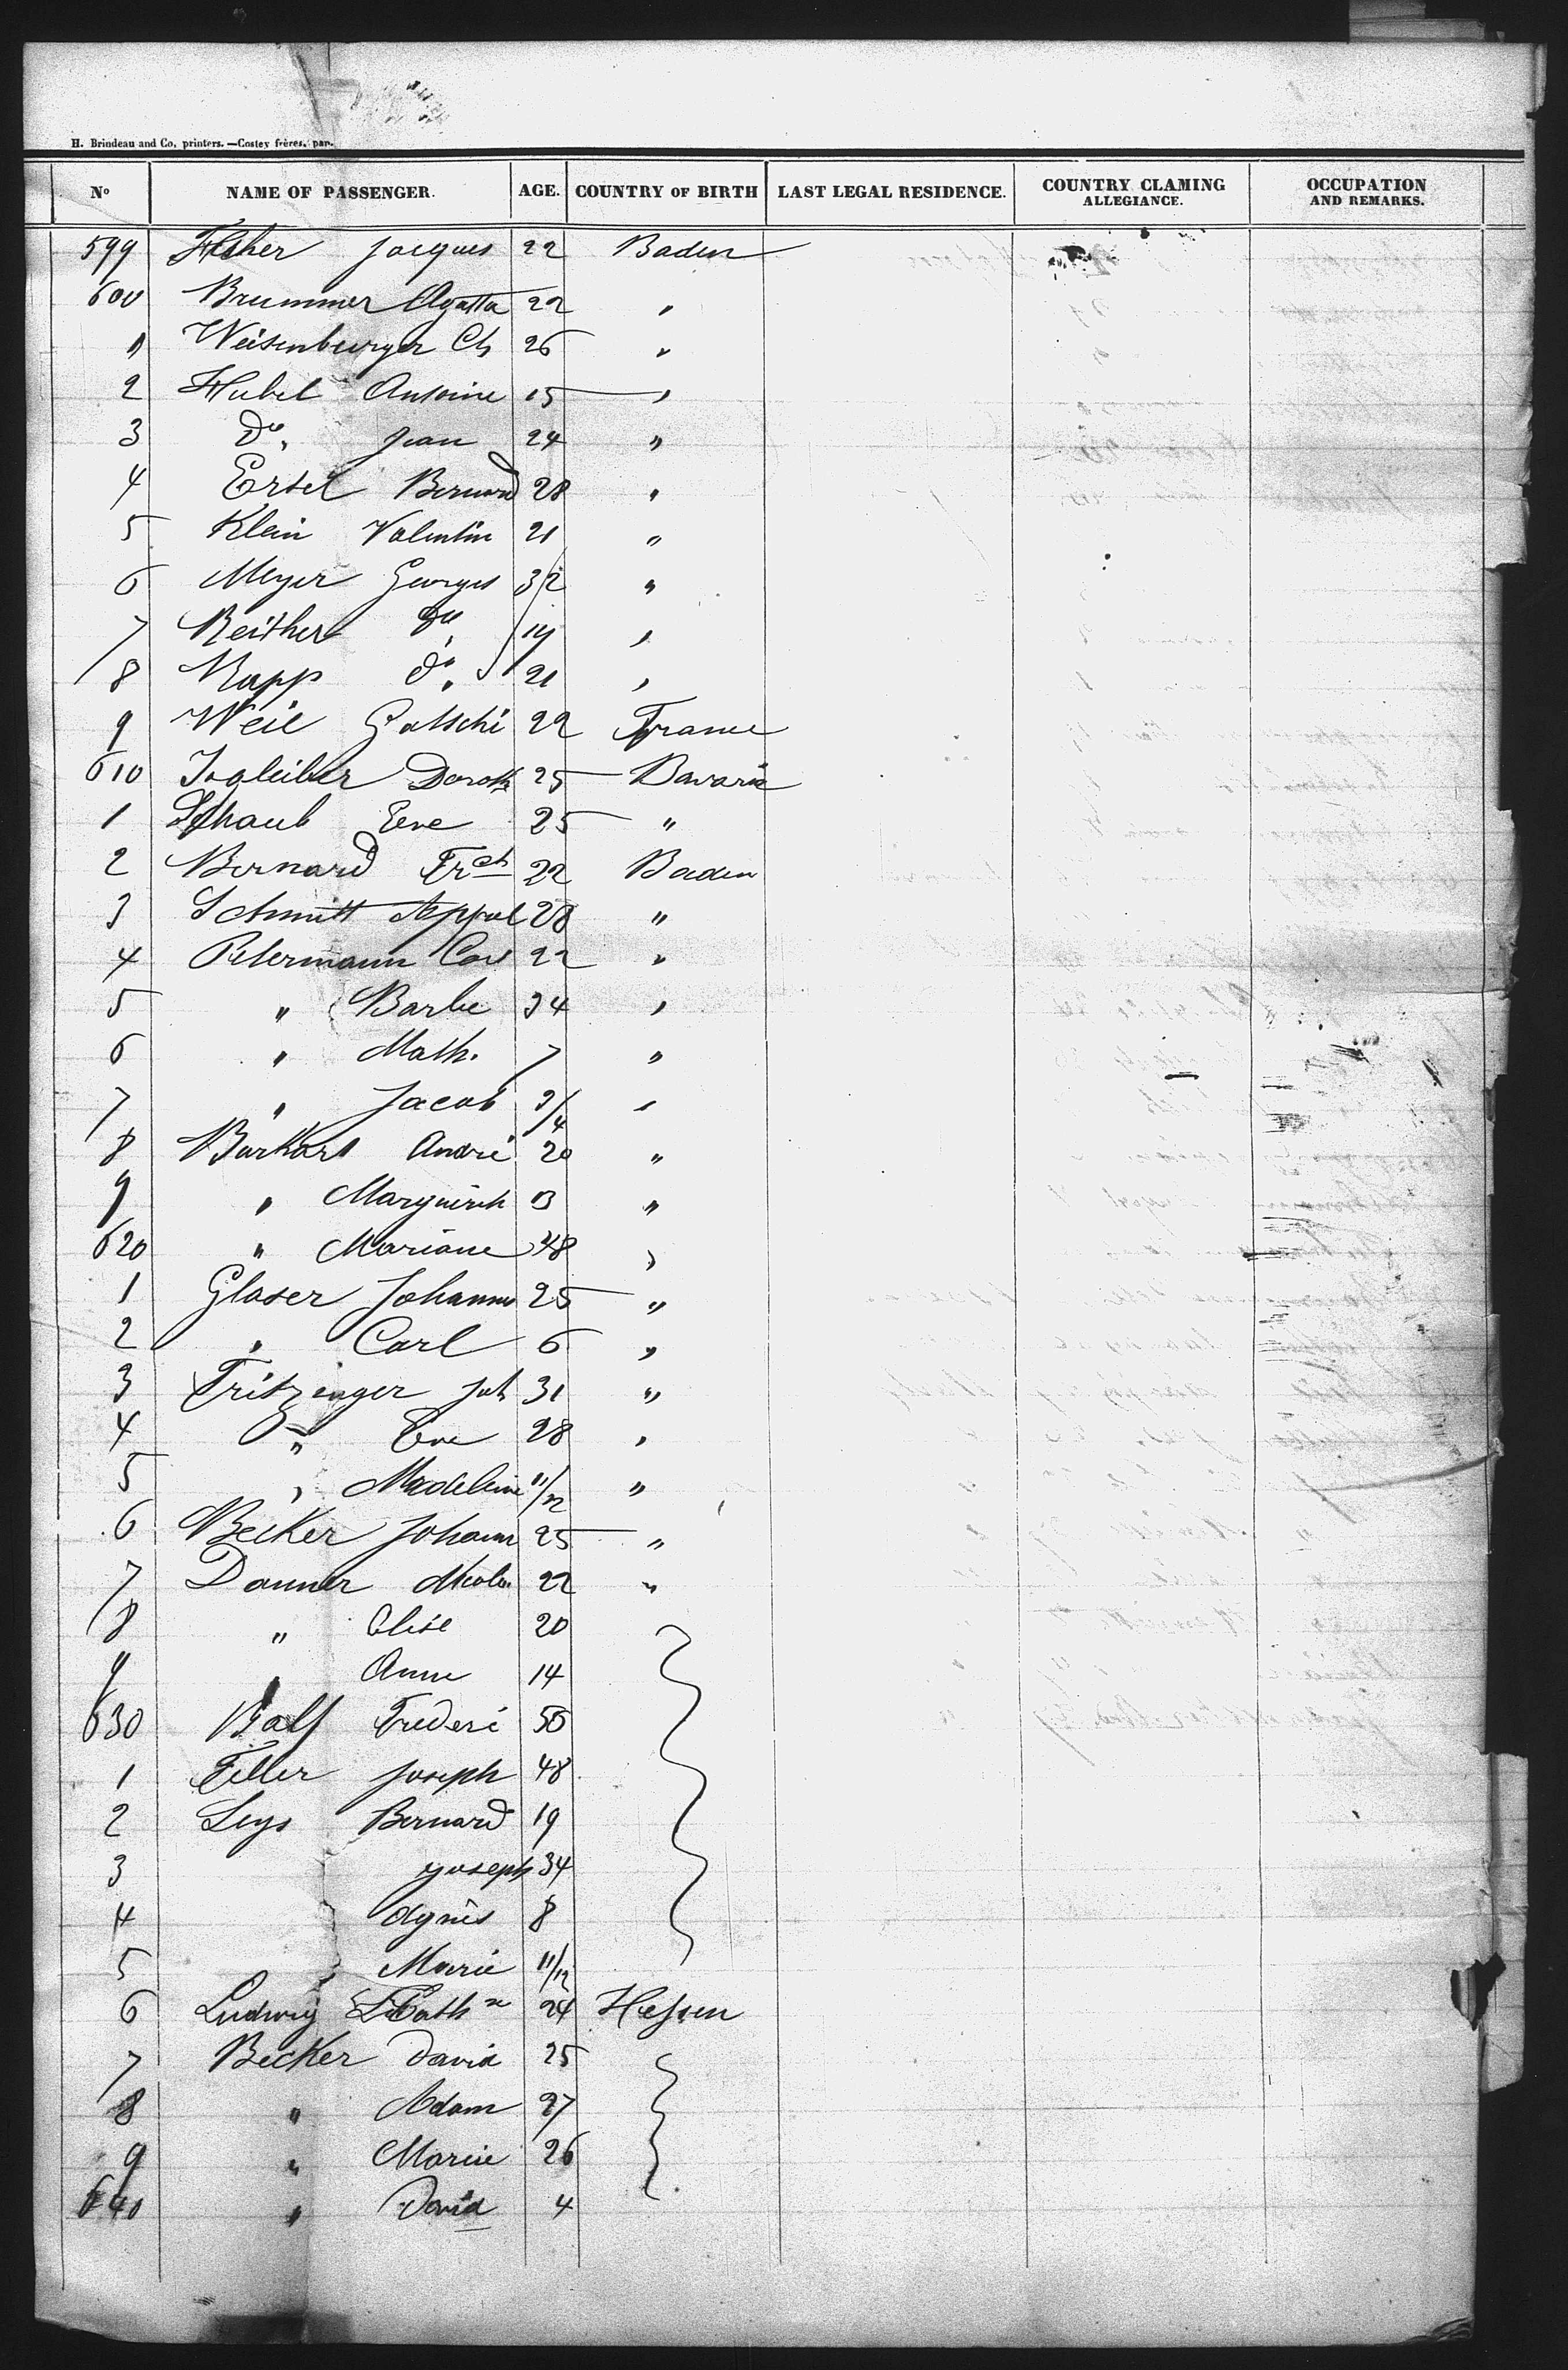 H. Brindeau and Co, printers. —Costey frères, par.
No NAME OF PASSENGER. AGE. COUNTRY OF BIRTH LAST LEGAL RESIDENCE. COUNTRY CLAMING ALLEGIANCE. OCCUPATION AND REMARKS.
599 Fisher Jacques 22 Baden
600 Brummer Agatta 22 "
1 Weisenburger Ch 26 "
2 Hubel Antoine 15 "
3 Do. Jean 24 "
4 Ersel Bernard 28 "
5 Klein Valentin 21 "
6 Meyer Georges 32 "
7 Reither Do. 19 "
8 Rapp Do. 21 "
9 Weil Gattschi 22 France
610 Doroth 25 Bavaria
1 Schaub Eve 25 "
2 Bernard Frch 22 Baden
3 Schmitt 28 "
4 Petermann Carl 22 "
5 " Barbe 34 "
6 " Math. 7 "
7 " Jacob 3/4 "
8 Burkart André 20 "
9 " 13 "
620 " Mariane 48 "
1 Glaser Johannes 25 "
2 " Carl 6 "
3 Fritzinger Joh 31 "
4 " Eve 28 "
5 " Madeleine 11/12 "
6 Becker Johann 25 "
7 Danner 22 "
8 " Elise 20
9 " Anne 14
630 Frederi
1 Feller Joseph 48
2 Leys Bernard 19
3 Joseph 34
4 Agnès 8
5 Marie 11/12
6 Ludwig Cathne 24 Hessen
7 Becker David 25
8 " Adam 27
9 " Marie 26
640 " David 4